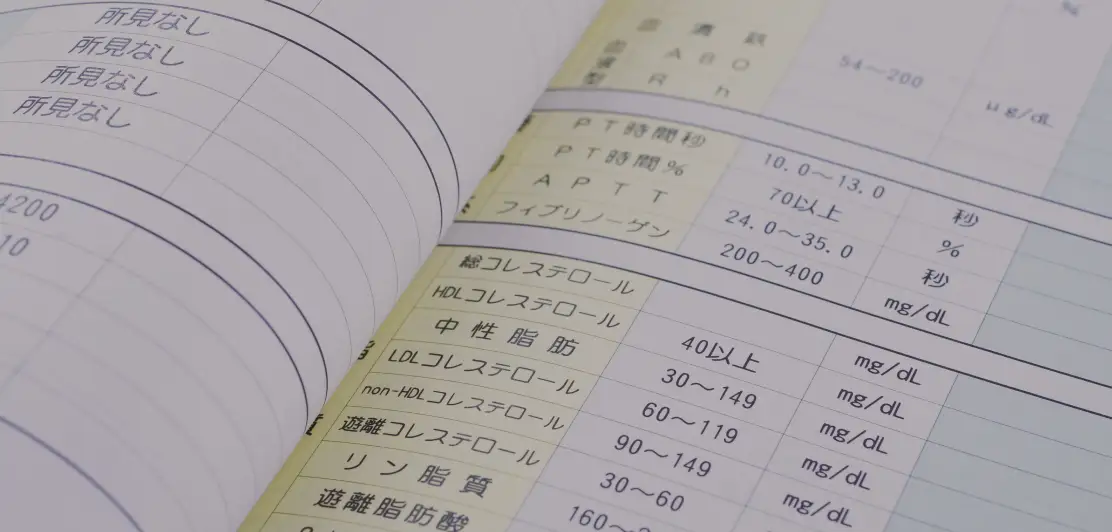 所見なし
所見なし
所見なし
所見なし
4200
10
%
血清鉄 54～200 μg/dL
ABO
型 Rh
PT時間秒 10.0～13.0 秒
PT時間% 70以上 %
APTT 24.0～35.0 秒
フィブリノーゲン 200～400 mg/dL
総コレステロール mg/dL
HDLコレステロール 40以上 mg/dL
中性脂肪 30～149 mg/dL
LDLコレステロール 60～119 mg/dL
non-HDLコレステロール 90～149 mg/dL
遊離コレステロール 30～60
リン脂質 160～
遊離脂肪酸